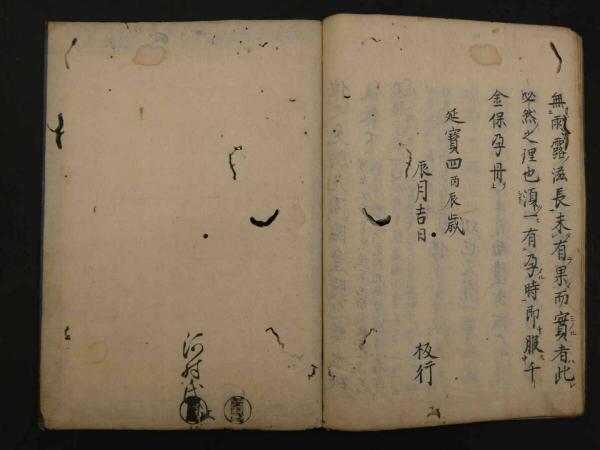 無雨露滋長未有果而實者此
必然之理也須一有孕時即服千
金保孕丹
延寶四丙辰歳
辰月吉日
板行
河村氏